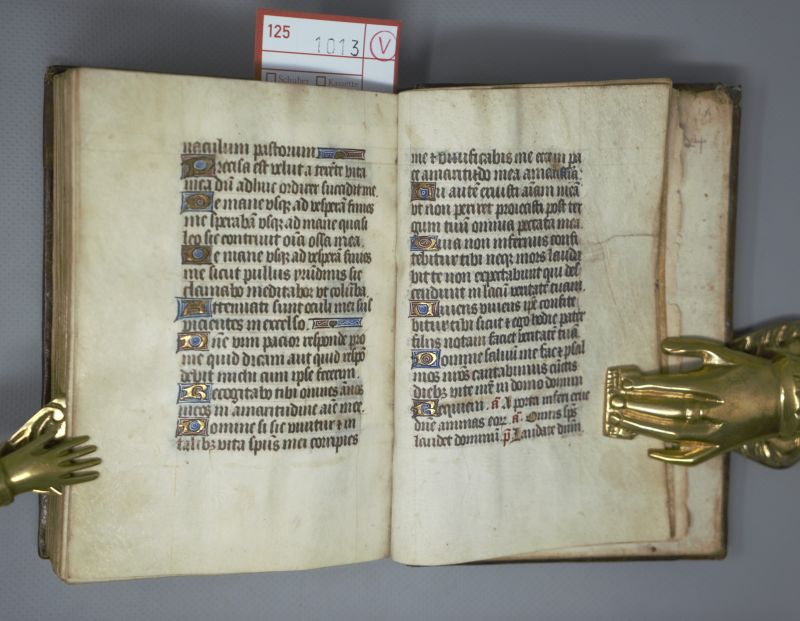 125
1013
V
Schuber
Kassette
naculum pastorum
Precisa est velut a texēte vita
mea dum adhuc ordirer succidit me
De mane vsq; ad vesperā finies
me sperabā vsq; ad mane quasi
leo sic contriuit oīa ossa mea.
De mane vsq; ad vesperā finies
me sicut pullus yrūdinis sic
clamabo meditabor vt colūba
Attenuati sunt oculi mei sus
picientes in excelso.
Dn̄e vim pacior responde pro
me quid dicam aut quid respō
debit michi cum ipse fecerim.
Recogitabo tibi omnes ānos
meos in amaritudine aīe mee.
Domine si sic viuitur ⁊ in
talib; vita spūs mei corripies
me ⁊ viuificabis me ecce in pa
ce amaritudo mea amarissīa
Tu autē eruisti aīam meā
vt non periret proiecisti post ter
gum tuū omnia peccata mea.
Quia non infernus confi
tebitur tibi neq; mors laudabit te non expectabunt qui des
cendunt in lacū veritatē tuam.
Viuens viuens ipse confite
bitur tibi sicut ⁊ ego hodie pater
filiis notam faciet veritatē tuā
Domine saluū me fac ⁊ psal
mos nr̄os cantabimus cūctis
dieb; vite nr̄e in domo domini
Requiem. a. A porta inferi erue
dn̄e animas eor. a. Omnis sp̄s
laudet dominū. p̄. Laudate dn̄m